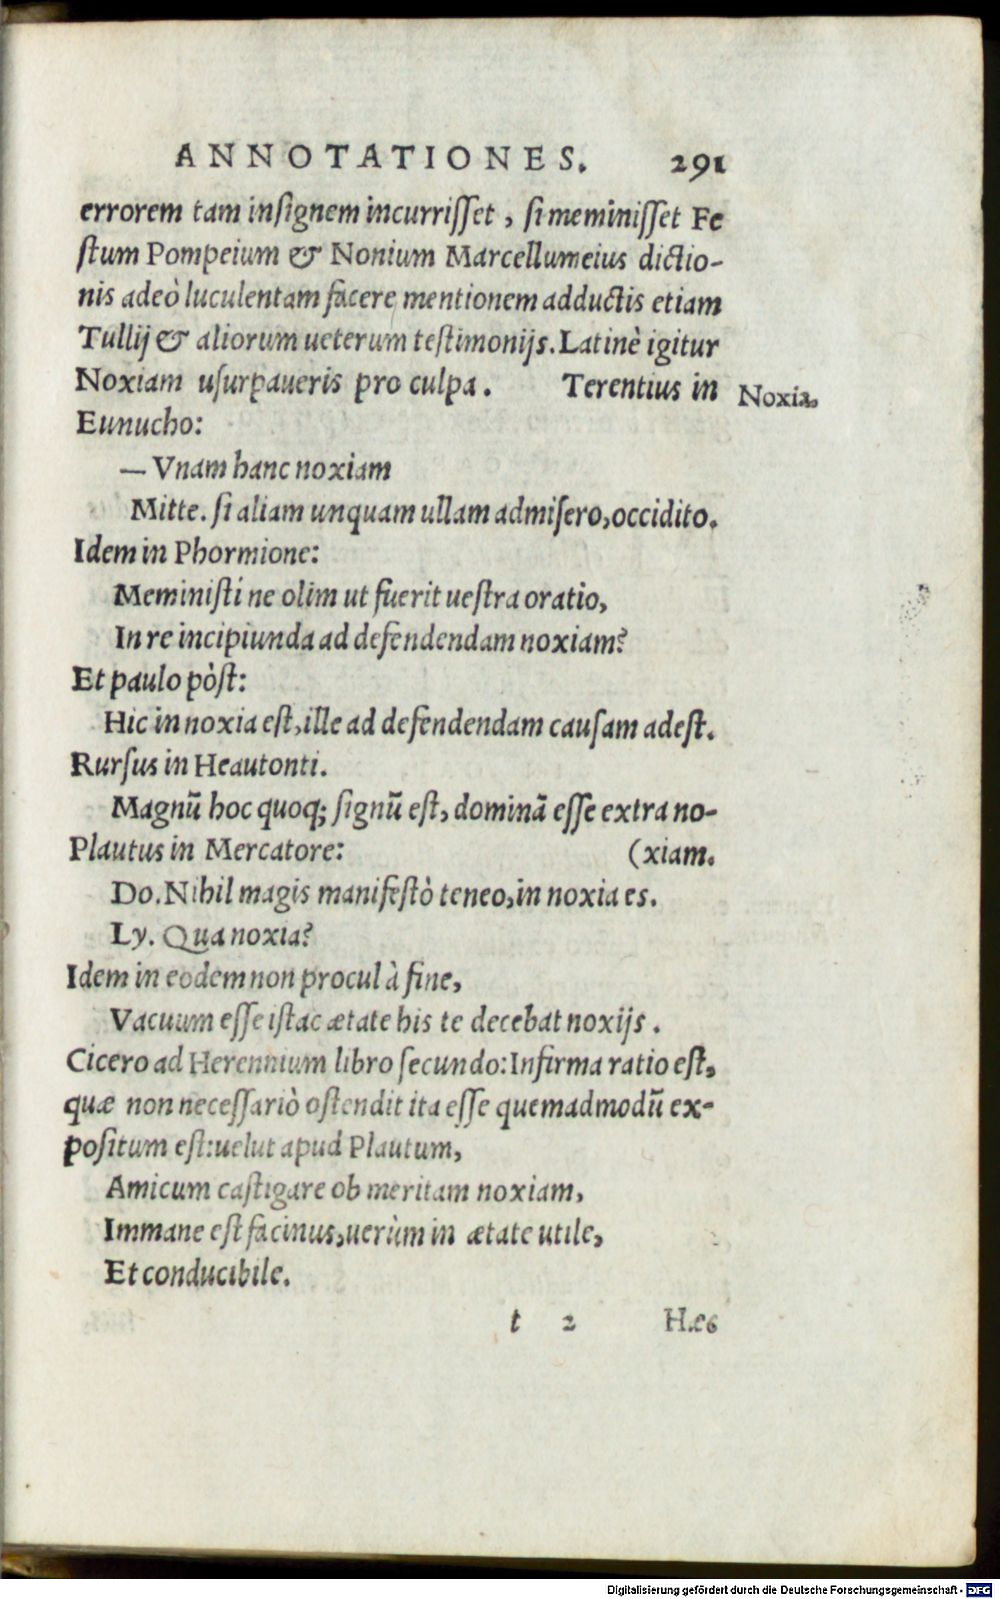 ANNOTATIONES. 291
errorem tam inſignem incurriſſet, ſi meminiſſet Fe
ſtum Pompeium & Nonium Marcellum eius dictio-
nis adeò luculentam facere mentionem adductis etiam
Tullij & aliorum ueterum teſtimonijs. Latinè igitur
Noxiam uſurpaueris pro culpa. Terentius in
Noxia.
Eunucho:
— Vnam hanc noxiam
Mitte. ſi aliam unquam ullam admiſero, occidito.
Idem in Phormione:
Meminiſti ne olim ut fuerit ueſtra oratio,
In re incipiunda ad defendendam noxiam?
Et paulo pòſt:
Hic in noxia eſt, ille ad defendendam cauſam adeſt.
Rurſus in Heautonti.
Magnũ hoc quoq; ſignũ eſt, dominã eſſe extra no-
Plautus in Mercatore: (xiam.
Do. Nihil magis manifeſtò teneo, in noxia es.
Ly. Qua noxia?
Idem in eodem non procul à fine,
Vacuum eſſe iſtac ætate his te decebat noxijs.
Cicero ad Herennium libro ſecundo: Infirma ratio eſt,
quæ non neceſſariò oſtendit ita eſſe quemadmodũ ex-
poſitum eſt: uelut apud Plautum,
Amicum caſtigare ob meritam noxiam,
Immane eſt facinus, uerùm in ætate utile,
Et conducibile.
t 2 Hæc
Digitalisierung gefördert durch die Deutsche Forschungsgemeinschaft - DFG